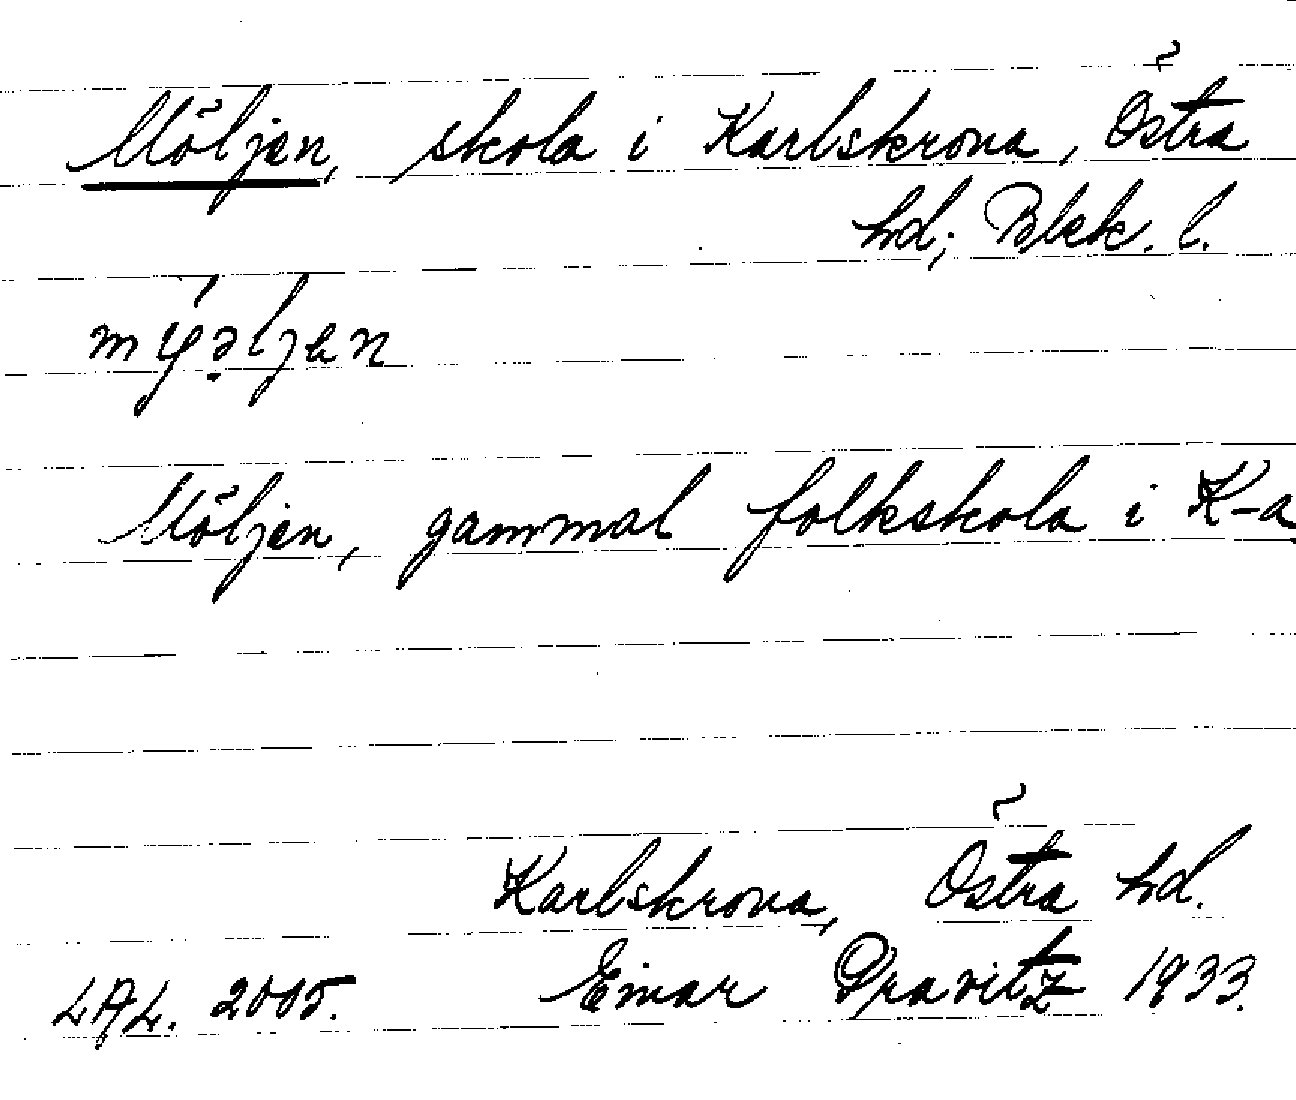 Möljen, skola i Karlskrona, Östra
hd; Blek. l.
Möljen, gammal folkskola i K-a
Karlskrona, Östra hd.
LAL. 2005. Einar Pravitz 1933.